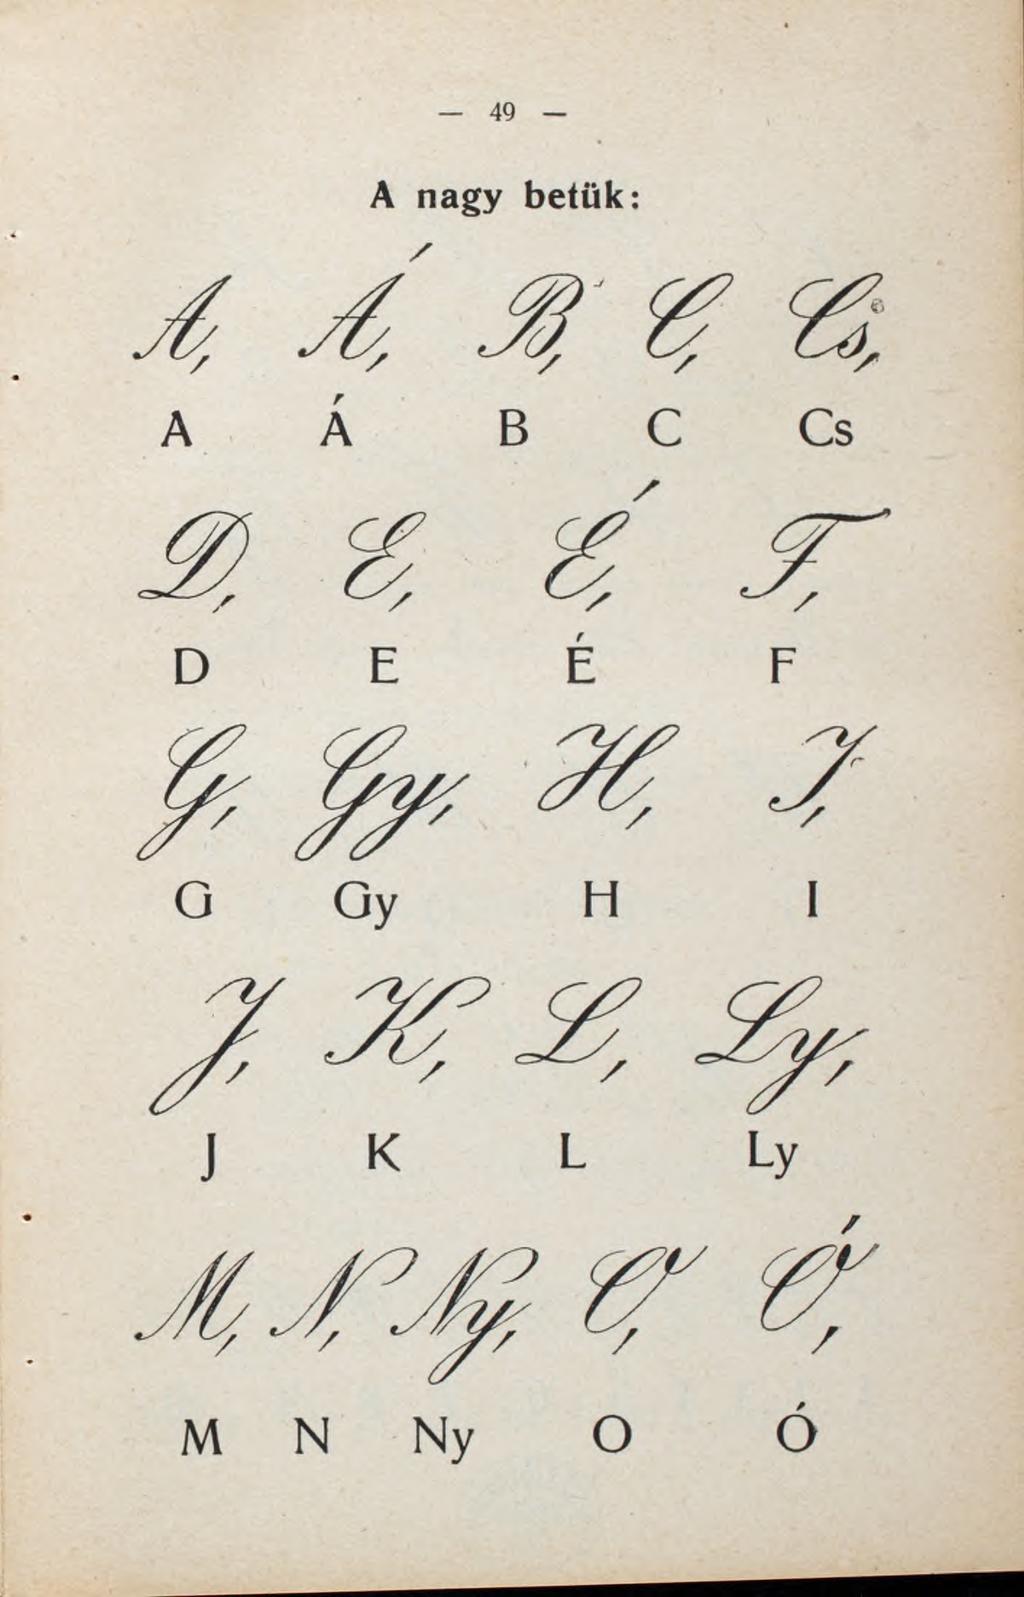 — 49 —
A nagy betük:
A, Á, B, C, Cs,
A Á B C Cs
D, E, É, F,
D E É F
G, Gy, H, I,
G Gy H I
J, K, L, Ly,
J K L Ly
M, N, Ny, O, Ó,
M N Ny O Ó